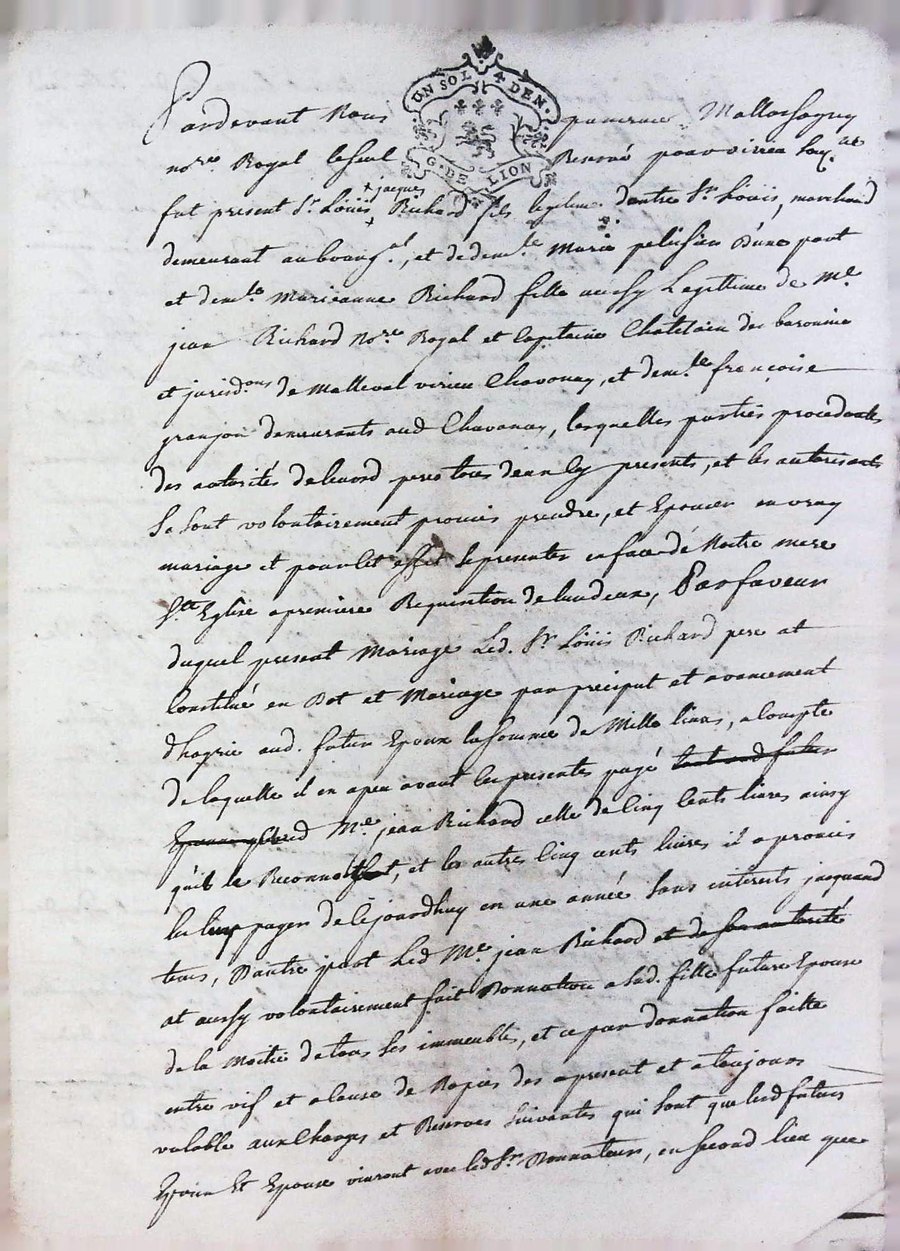 UN SOL 4 DEN.
G. DE LION
Pardevant Nous
no.re Royal Reservé pour virieu
fut present Sr. Löüis jacques Richard fils legitime dautre Sr. Löüis, marchand
demeurant au bourg, et de dem.lle Marie pelissier D'une part
et dem.lle Marieanne Richard fille aussy Legittime de Me.
jean Richard No.re Royal et Capitaine Chatelain des baronnie
et jurisd.ons de Malleval virieu Chavanay, et dem.lle françoise
granjon demeurants aud Chavanay, lesquelles parties procedantes
des autorités de leursd peres tous deux icy presents, et les autorisants
Se sont volontairement promis prendre, et Epouser en vray
mariage et pour cet effet se presenter en face de Notre mere
Ste Eglise a premiere Requisition de lun deux, Par faveur
duquel present Mariage Led. Sr Löüis Richard pere at
Constitué en Dot et Mariage par preciput et avancement
dhoyrie aud. futur Epoux la somme de Mille livres, a Compte
de laquelle il en a peu avant les presentes payé tant aud futur
Epoux qu'aud Me. jean Richard celle de Cinq Cents livres ainsy
quils le Reconnoissent, et les autres Cinq cents livres il a promis
les leur payer de cejourdhuy en une année sans interets jusquand
tems, Dautre part Led Me. jean Richard et de son autorité
at aussy volontairement fait Donnation a sad. fille future Epouse
de la Moitié de tous ses immeubles, et ce par donnation faitte
entre vif et a cause de Nopces des apresent et a toujours
valable aux Charges et Reserves Suivantes qui sont que lesd futurs
Epoux Et Epouse vivront avec led Sr. Donnateur, en second lieu que